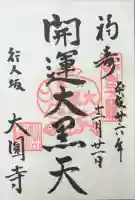 福寿
平成廿六年
十二月廿一日
開運大黒天
行人坂
大圓寺